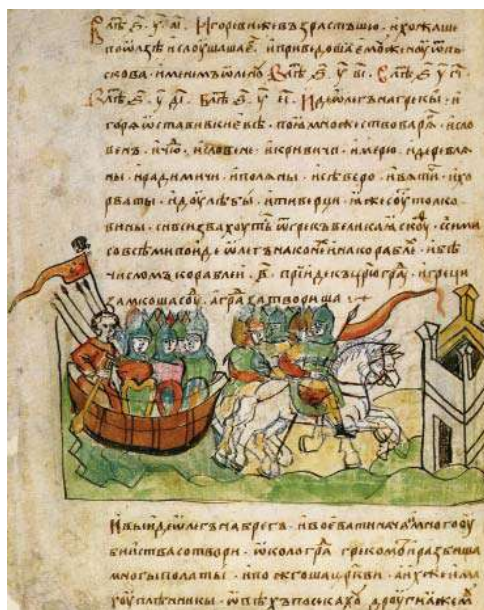 В лѣт҃ ҂ѕ҃ у҃ аі҃. Игореви же възрастъшю. и хожаше
по ѡлзѣ и слоушаша е҃. и приведоша емоу женоу ѿ пь
скова. именимъ ѡлену. В лѣт҃ ҂ѕ҃ у҃ ві҃. В лѣт҃ ҂ѕ҃ у҃ гі҃.
В лѣт҃ ҂ѕ҃ у҃ ді҃. В лѣт҃ ҂ѕ҃ у҃ еі҃. Иде ѡлегъ на грекы. и
горѧ ѡстави в киевѣ. поѧ множество варѧ. и сло
венъ. и чю. и словене. и кривичи. и мерю. и деревлѧ
ны. и радимичи. и полѧны. и сѣверо. и вѧти. и хо
рваты. и доулѣбы. и тиверци. ꙗже соу толко
вины. си вси звахоуть ѿ грекъ великаꙗ скоу. с сими
со всѣми поиде ѡлегъ на конѣ и на кораблѣ. и бѣ
числомъ кораблеи. в҃. прїиде къ црюгра. и греци
замкоша соу. а гра затвориша
И выиде ѡлегъ на брегъ. и воевати нача. и много оу
бииства сотвори. ѡколо гра грекомъ. и разбиша
многы полаты. и пожгоша цркви. а ихже има
хоу плѣнникы. ѡвѣхъ посѣкахоу. дроугиꙗ же